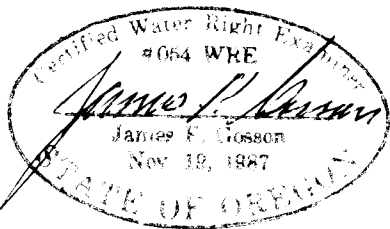 Certified Water Right Examiner
#054 WRE
James F. Gosson
Nov 19, 1987
STATE OF OREGON